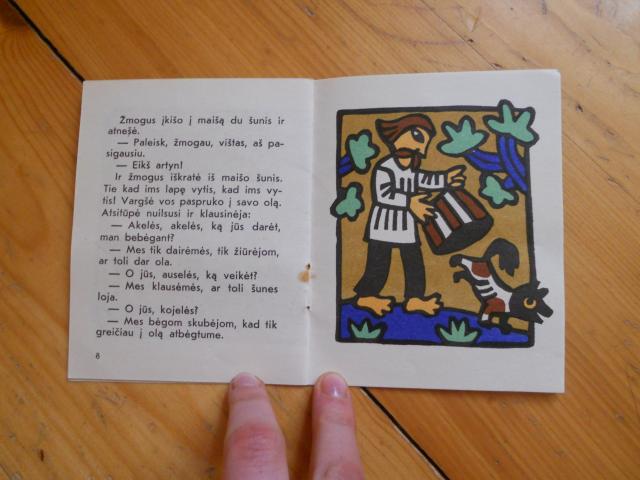 Žmogus įkišo į maišą du šunis ir
atnešė.
— Paleisk, žmogau, vištas, aš pa-
sigausiu.
— Eikš artyn!
Ir žmogus iškratė iš maišo šunis.
Tie kad ims lapę vytis, kad ims vy-
tis! Vargšė vos paspruko į savo olą.
Atsitūpė nuilsusi ir klausinėja:
— Akelės, akelės, ką jūs darėt,
man bebėgant?
— Mes tik dairėmės, tik žiūrėjom,
ar toli dar ola.
— O jūs, auselės, ką veikėt?
— Mes klausėmės, ar toli šunes
loja.
— O jūs, kojelės?
— Mes bėgom skubėjom, kad tik
greičiau į olą atbėgtume.
8